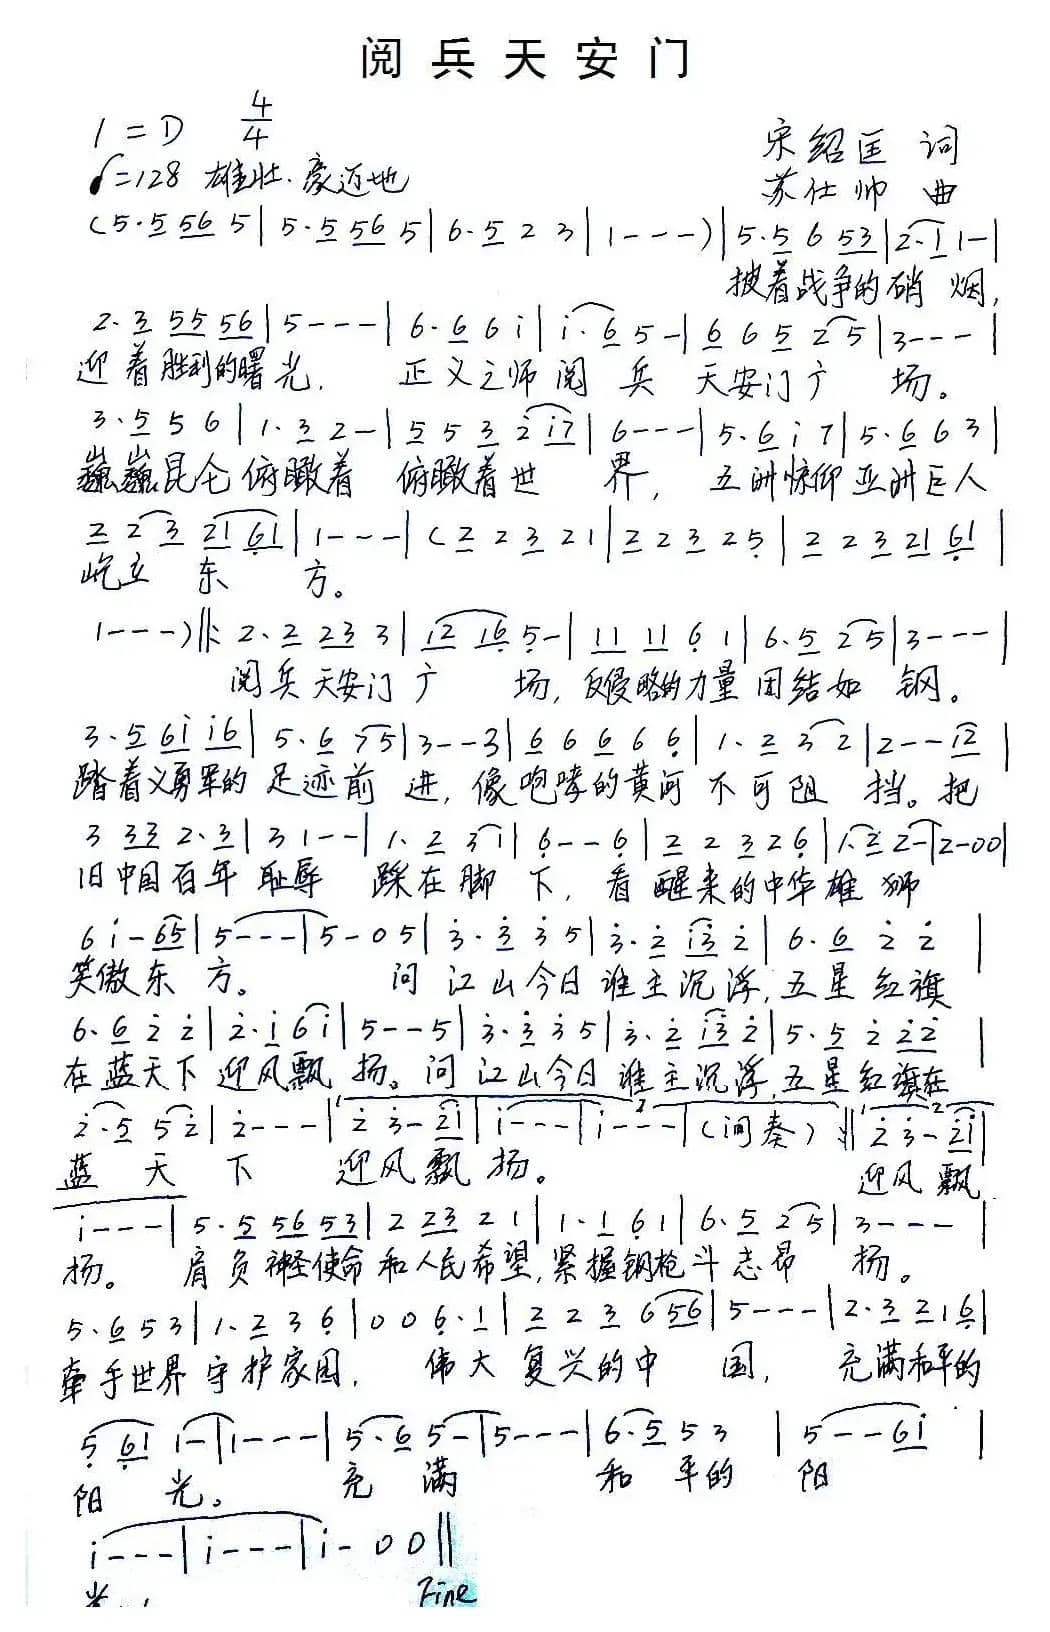 阅兵天安门
1=D 4/4
宋绍匡 词
♩=128 雄壮、豪迈地
苏仕帅 曲
(5·5 56 5| 5·5 56 5| 6·5 2 3| 1---)| 5·5 6 53| 2·1 1-|
披着战争的硝烟,
2·3 55 56| 5---| 6·6 6 i| i·6 5-| 6 6 5 2 5| 3---|
迎着胜利的曙光, 正义之师阅兵天安门广场。
3·5 5 6| 1·3 2-| 5 5 3 2 i7| 6---| 5·6 i 7| 5·6 6 3|
巍巍昆仑俯瞰着 俯瞰着世界, 五洲惊仰亚洲巨人
2 2 3 21 61| 1---| (2 2 3 2 1| 2 2 3 2 5| 2 2 3 21 61|
屹立东方。
1---)‖: 2·2 23 3| 12 16 5-| 11 11 6 1| 6·5 2 5| 3---|
阅兵天安门广场, 反侵略的力量团结如钢。
3·5 6i i6| 5·6 7 5| 3--3| 6 6 6 6 6| 1·2 3 2| 2--12|
踏着义勇军的足迹前进, 像咆哮的黄河不可阻挡。把
3 33 2·3| 3 1--| 1·2 3 1| 6--6| 2 2 3 2 6| 1·2 2-|2-00|
旧中国百年耻辱 踩在脚下, 看醒来的中华雄狮
6 i-65| 5---| 5-0 5| 3·3 3 5| 3·2 i3 2| 6·6 2 2|
笑傲东方。 问江山今日谁主沉浮, 五星红旗
6·6 2 2| 2·i 6 i| 5--5| 3·3 3 5| 3·2 i3 2| 5·5 2 22|
在蓝天下迎风飘扬。问江山今日谁主沉浮, 五星红旗在
2·5 5 2| 2---| 2 3-2i| i---| i---| (间奏) :‖ 2 3-2i|
蓝天下 迎风飘扬。 迎风飘
i---| 5·5 56 53| 2 23 2 1| 1·1 6 1| 6·5 2 5| 3---|
扬。 肩负神圣使命和人民希望, 紧握钢枪斗志昂扬。
5·6 5 3| 1·2 3 6| 0 0 6·1| 2 2 3 6 56| 5---| 2·3 2 1 6|
牵手世界守护家园, 伟大复兴的中国, 充满和平的
5 61 1-| 1---| 5·6 5-| 5---| 6·5 5 3| 5--6i|
阳光。 充满 和平的 阳
i---| i---| i-00‖
Fine